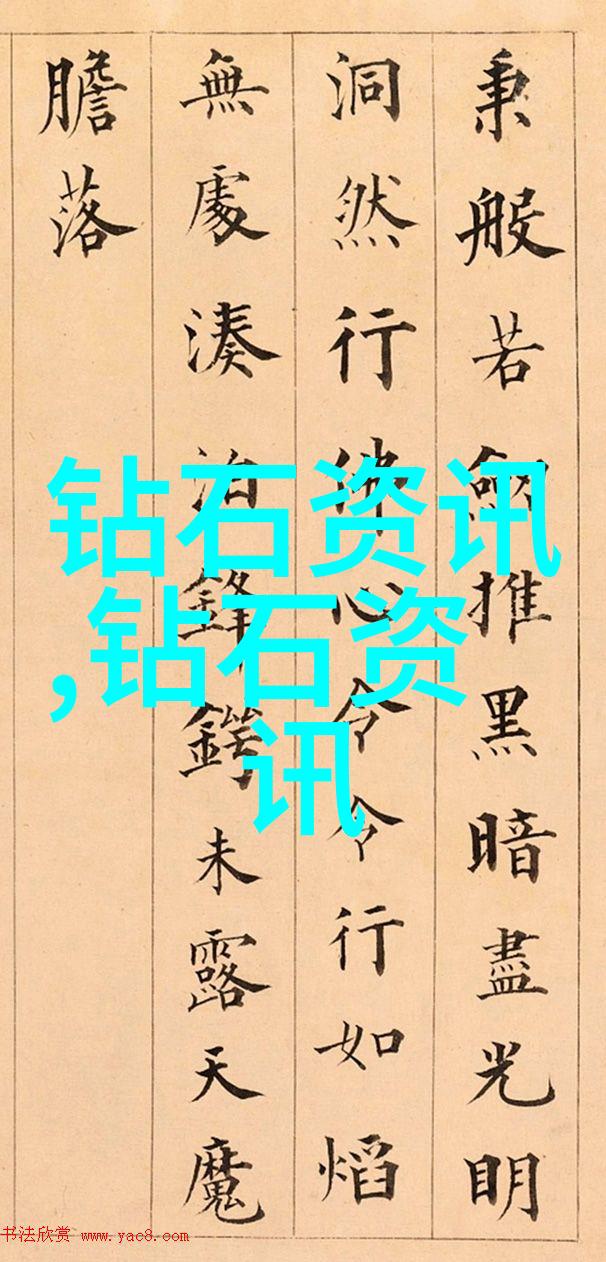 秉般若劒推黑暗盡光明
洞然行佛心令令行如熖
無處湊泊鋒鍔未露天魔
膽落
钻石资讯
,钻石资
讯
书法欣赏 www.yac8.com